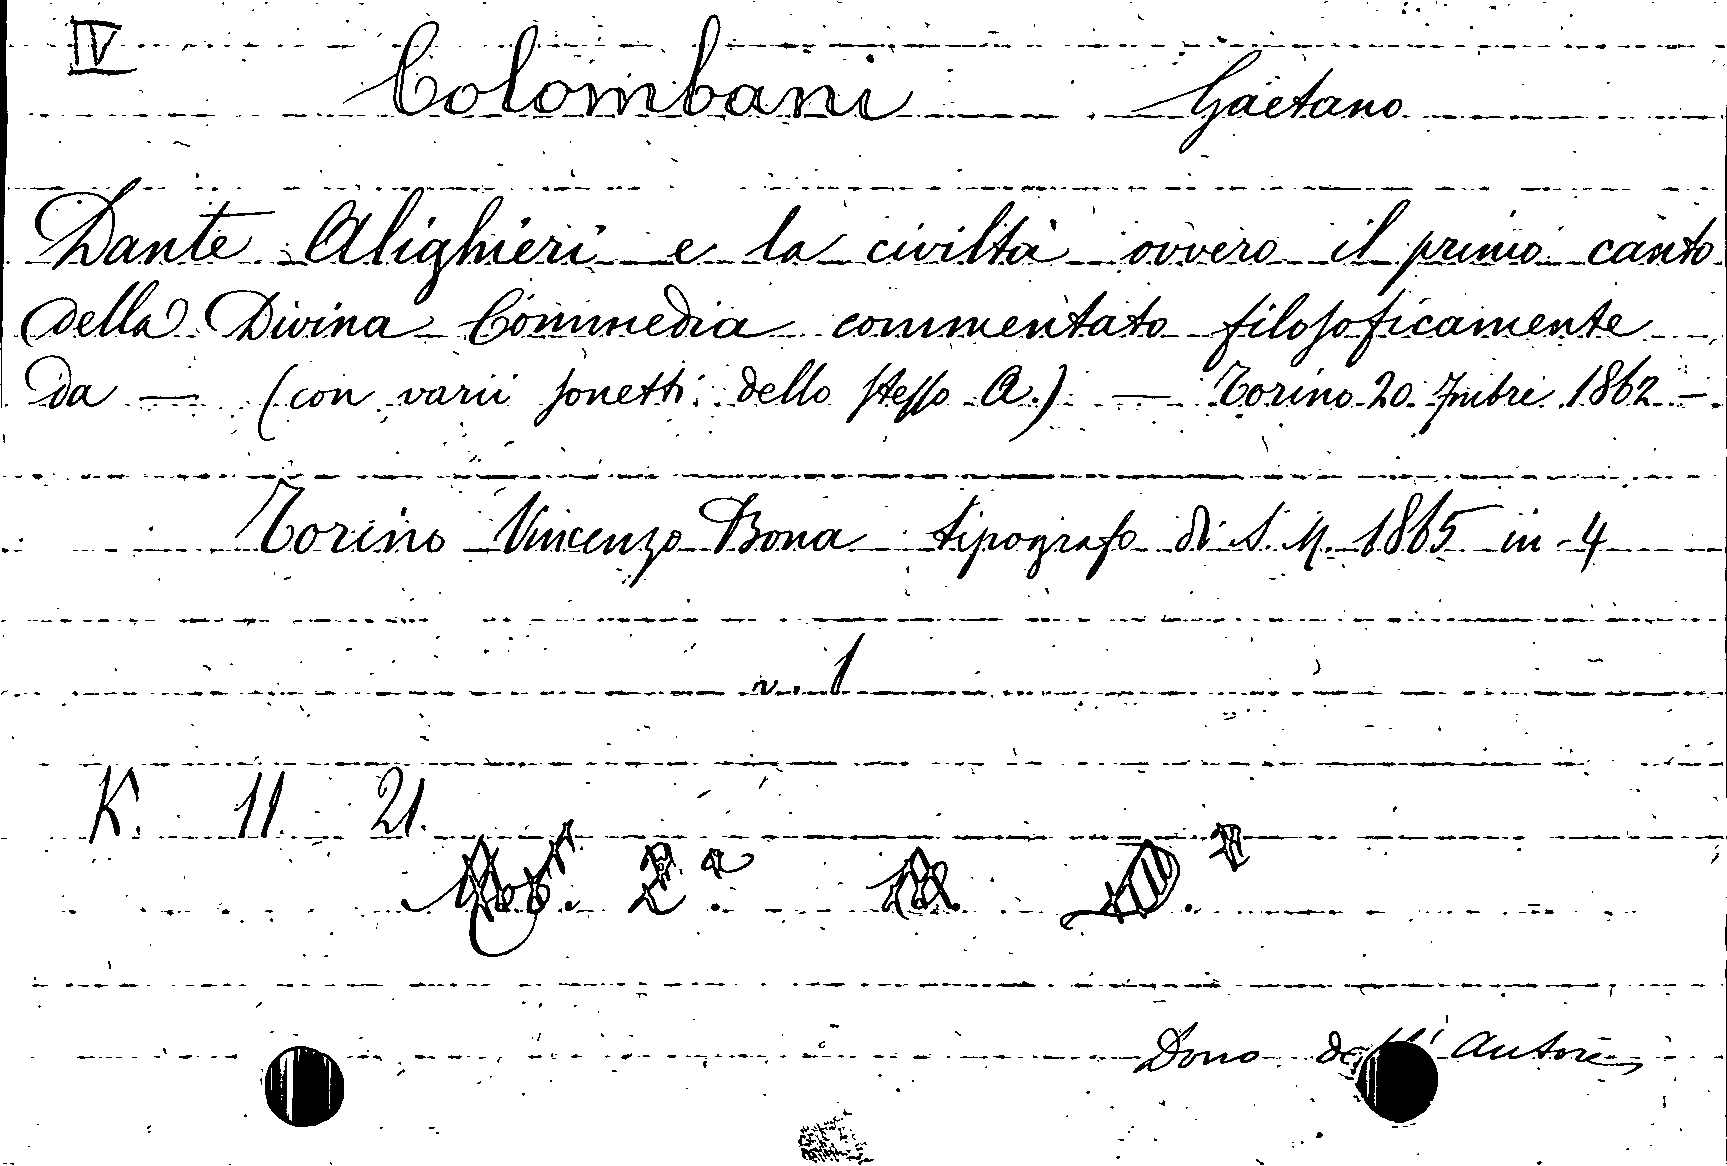 IV
Colombani Gaetano
Dante Alighieri e la civiltà ovvero il primo canto
della Divina Commedia commentato filosoficamente
da — (con varii sonetti dello stesso A.) — Torino 20 7mbre 1862 —
Torino Vincenzo Bona tipografo di S. M. 1865 in-4
v. 1
K. 11. 21.
Dono dell'Autore